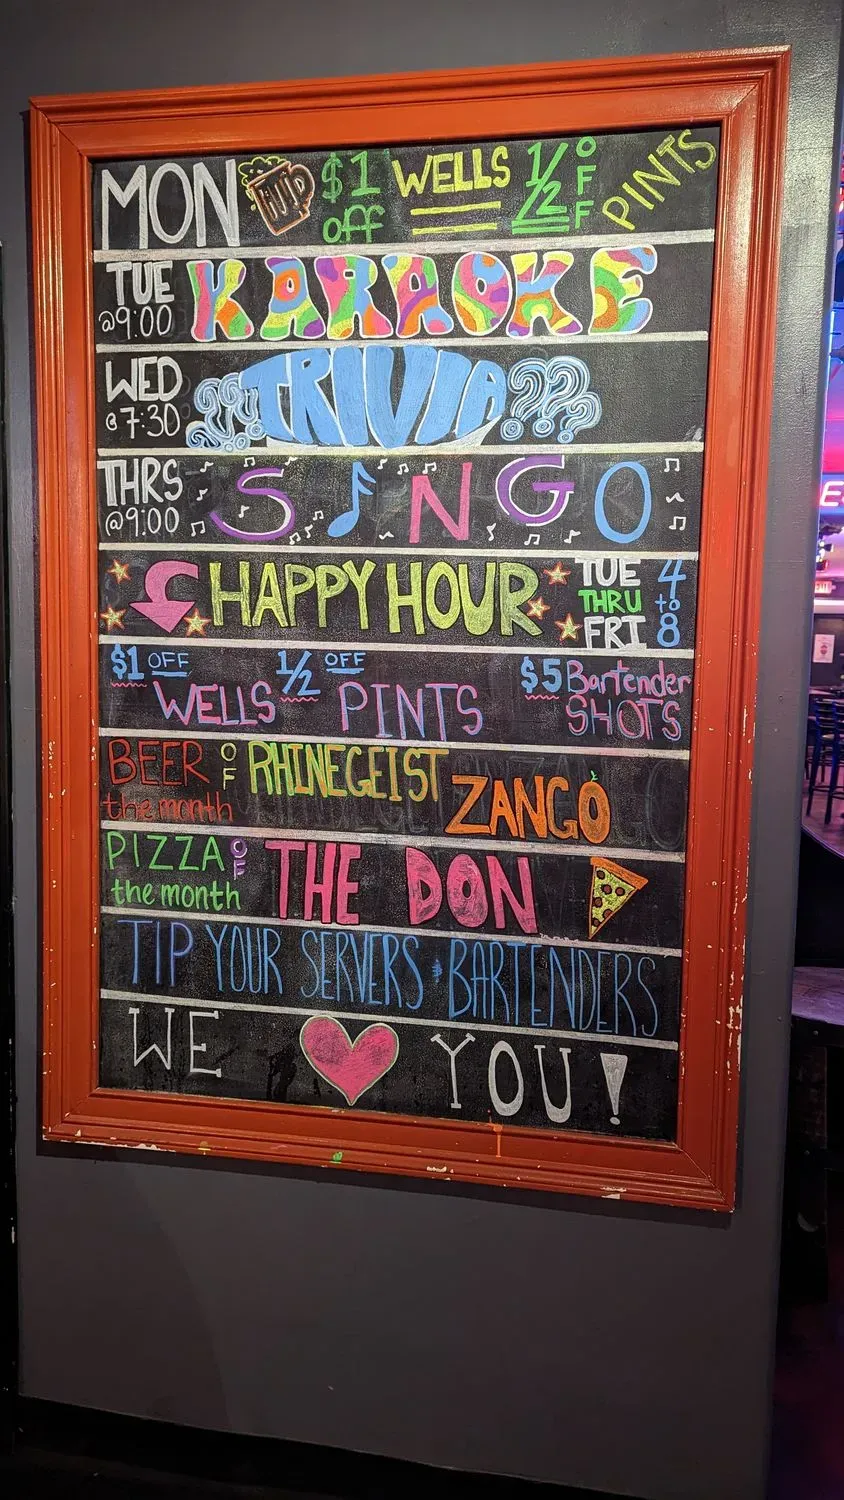 MON $1 off WELLS 1/2 OFF PINTS
TUE @9:00 KARAOKE
WED @7:30 TRIVIA ???
THRS @9:00 S♪NGO
HAPPY HOUR TUE THRU FRI 4 to 8
$1 OFF WELLS 1/2 OFF PINTS $5 Bartender SHOTS
BEER OF the month RHINEGEIST ZANGO
PIZZA OF the month THE DON
TIP YOUR SERVERS + BARTENDERS
WE ♥ YOU!